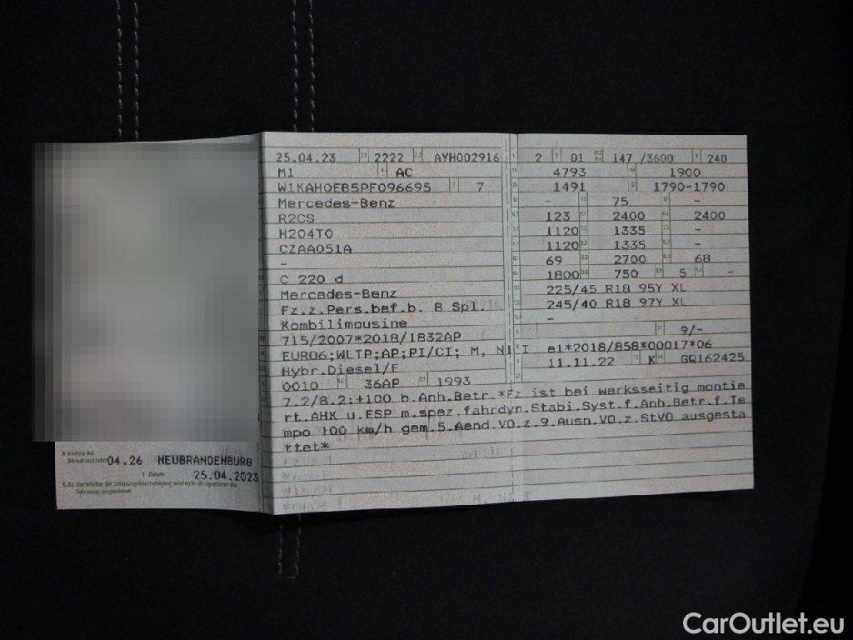 25.04.23 2222 AYH002916
M1 AC
W1KAH0EB5PF096695 7
Mercedes-Benz
R2CS
H204T0
CZAA051A
-
C 220 d
Mercedes-Benz
Fz.z.Pers.bef.b. 8 Spl.
Kombilimousine
715/2007*2018/1832AP
EURO6;WLTP;AP;PI/CI; M, N1 I
Hybr.Diesel/E
0010 36AP 1993
7.2/8.2:+100 b.Anh.Betr.*Fz ist bei werksseitig montie
rt.AHK u.ESP m.spez.fahrdyn.Stabi.Syst.f.Anh.Betr.f.Te
mpo 100 km/h gem.5.Aend.VO.z.9.Ausn.VO.z.StVO ausgesta
ttet*
2 01 147 /3600 240
4793 1900
1491 1790-1790
- 75 -
123 2400 2400
1120 1335 -
1120 1335 -
69 2700 68
1800 750 5 -
225/45 R18 95Y XL
245/40 R18 97Y XL
-
9/-
e1*2018/858*00017*06
11.11.22 K GQ162425
04.26 NEUBRANDENBURG
25.04.2023
CarOutlet.eu